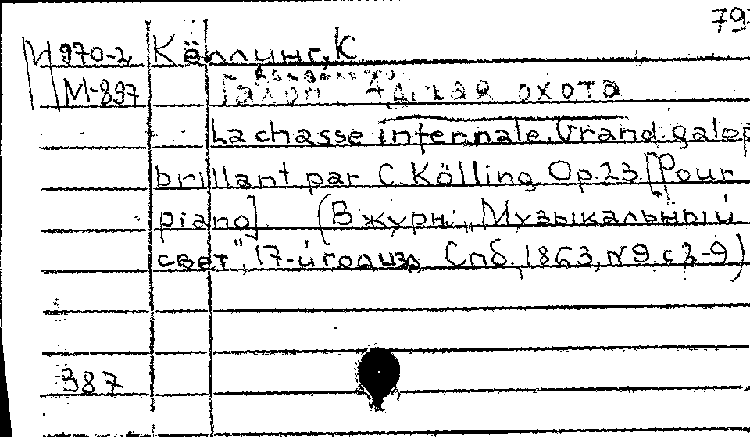 79
М 970-2 Кёллинг, К.
М-897 Галоп Адская охота
La chasse infernale. Grand galop
brillant par C. Kölling Op. 23 [Pour
piano] (В журн. „Музыкальный
свет", 17-й год изд. Спб., 1863, №9, с 3-9)
387